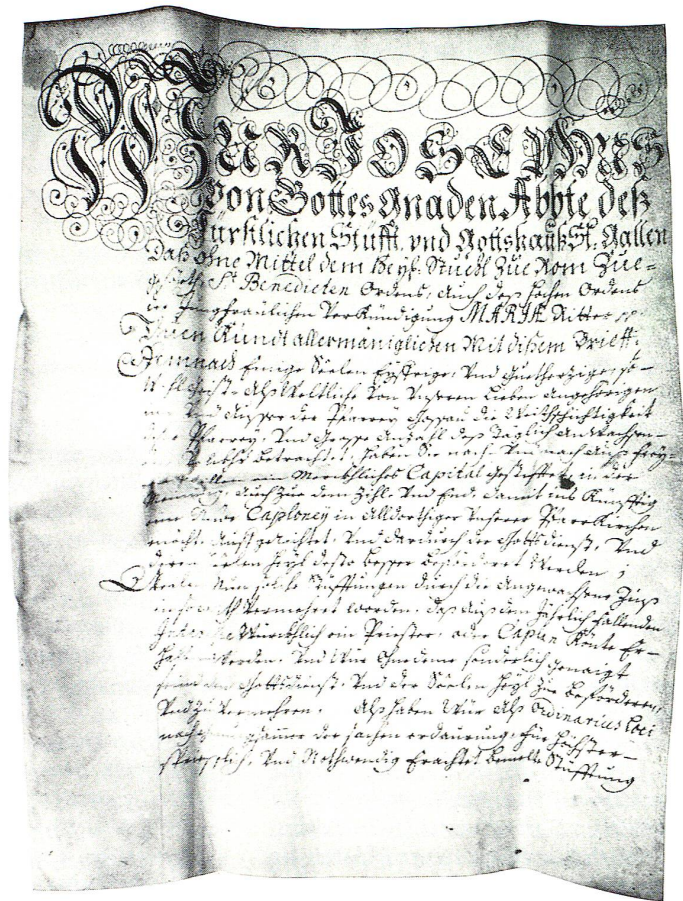 WIR JOSEPHUS
Von Gottes Gnaden Abbte deß
Fürstlichen Stüfft vnd Gottshauß St. Gallen
Daß ohne Mittel dem Heyl. Stuehl Zue Rom Zue-
St Benedicten Ordens, auch deß hochen Ordens
der Jungfräulichen Verkündigung MARIÆ Ritter
Thuen Kundt allermäniglichen Mit disem Brieff:
Demnach Einige Seelen Eyffrige, Vnd Guethertzige, so-
wohl Geist- Alß Weltliche Von Vnseren Lieben Angehörigen
Vnd Ausser der Pfarrey Gossau die Weithschichtigkeit
Pfarrey, Vnd Grosse Anzahl deß Täglich Anwachsen-
betrachtet, haben Sie nach Vnd nach auß frey-
ein Merckhliches Capital gestifftet, in der
Meinung, auch zue dem Zihl Vnd End, damit ins Künfftig
eine Neuwe Caploney in Alldorthiger Vnserer Pfarrkirchen
möchte Auffgerichtet, Vnd dardurch der Gottsdienst, Vnd
deren Seelen Heyl desto besser befürderet Werden;
Wann Nun solche Stüfftungen durch die Angewachsene Zinß
in so weith Vermehret worden, daß auß dem Jährlich fallenden
Würckhlich ein Priester, oder Caplan Könte Er-
halten Werden, Vnd Wür ohnedeme sonderlich genaigt
seind den Gottsdienst, Vnd der Seelen Heyl Zue Beförderen,
Vnd Zu Vermehren. Alß haben Wür Alß Ordinarius Loci
nach der sachen erdaurung, für höchster-
sprießlich, Vnd Nothwendig Erachtet bemelte Stüfftung